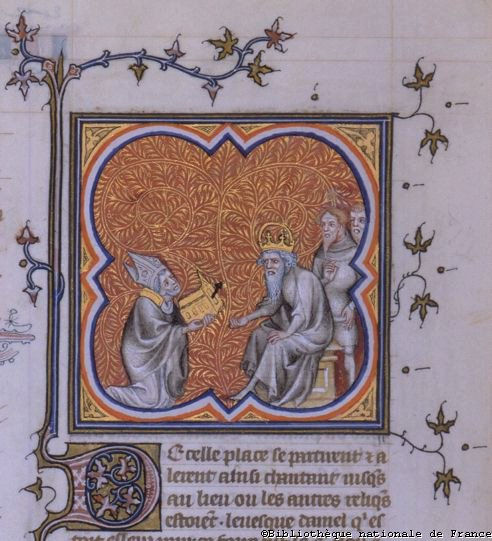 De celle place se partirent ⁊ a
lerent ainsi chantant iusqs
au lieu ou les autres reliqs
estoiẽt . levesque daniel q'es
©Bibliothèque nationale de France